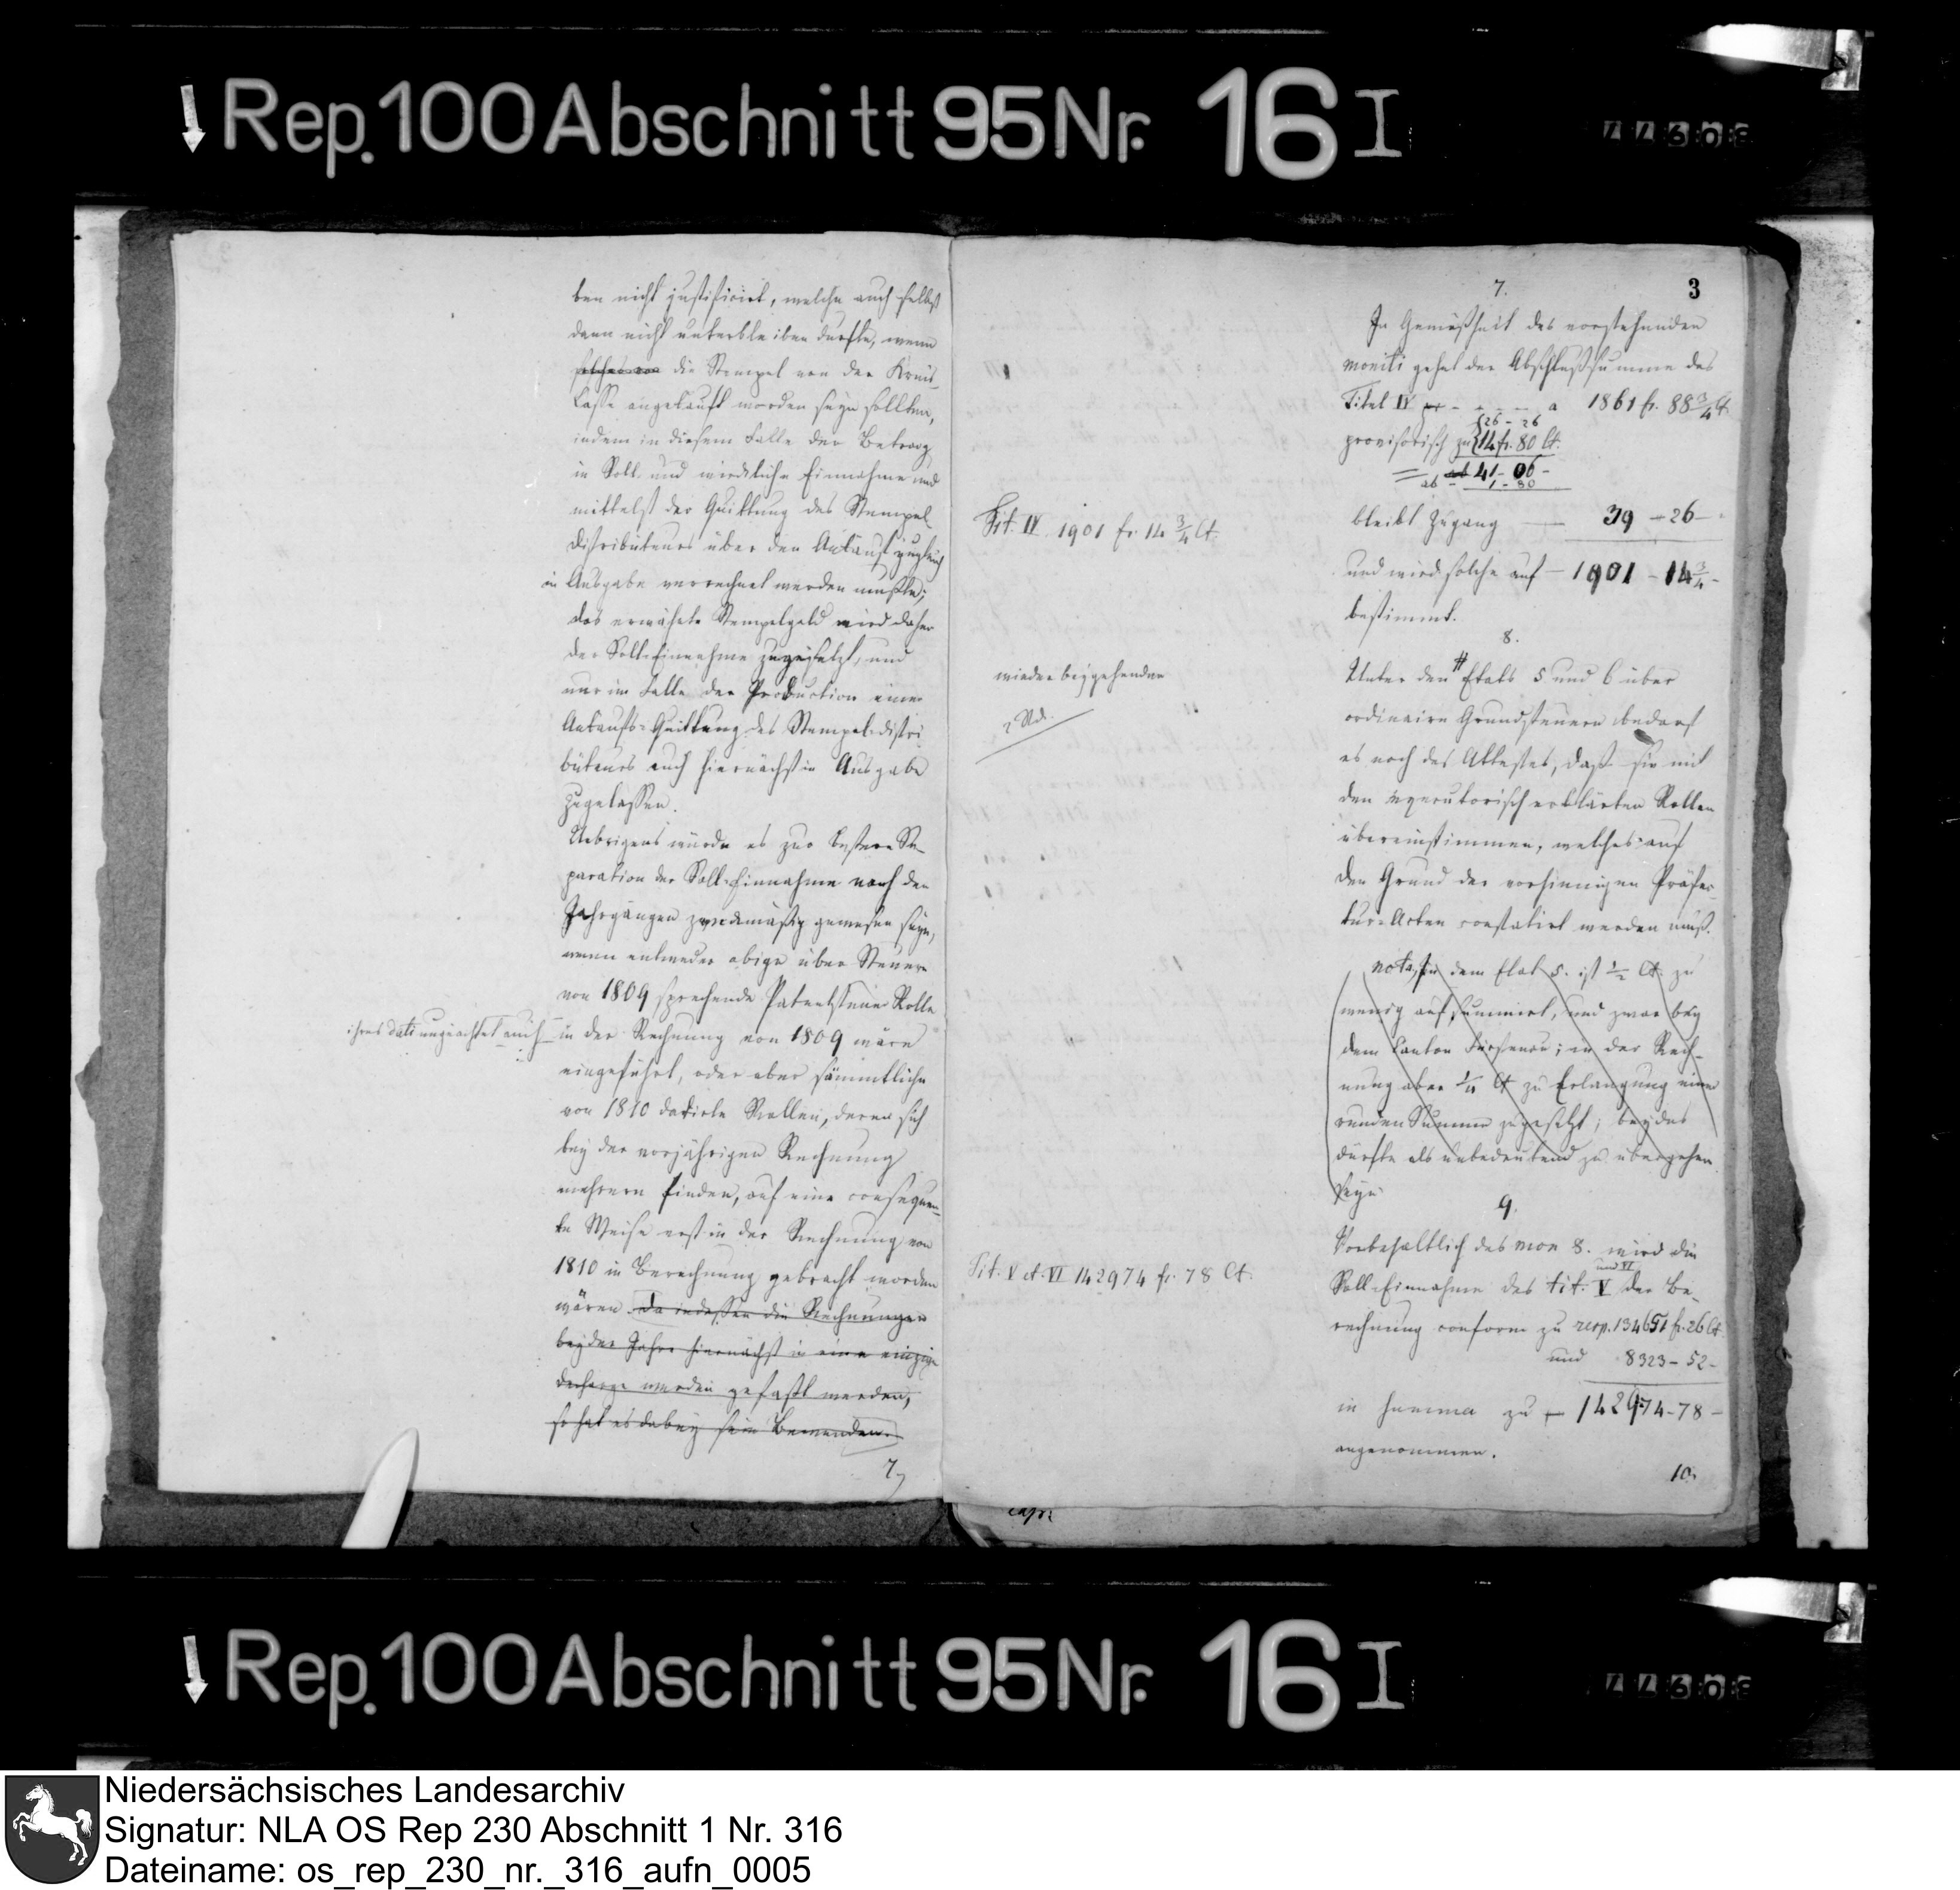 Rep. 100 Abschnitt 95 Nr. 16 I
ben nicht justificirt, welche auch selbst
dann nicht unterbleiben durfte, wenn
solches von die Stempel von der Kreis-
Casse angekauft worden seyn sollten,
indem in diesem Falle der Betrag
in Soll und wirkliche Einnahme und
mittelst der Quittung des Stempel-
distributeurs über den Ankauf zugleich
in Ausgabe verrechnet werden mußte;
das erwähnte Stempelgeld wird daher
der Soll-Einnahme zugesetzt, und
nur im Falle der Production einer
Ankaufs-Quittung des Stempel-distri
buteurs auch hiernächst in Ausgabe
zugelassen.
Uebrigens würde es zur bessern Se-
paration der Soll-Einnahme nach den
Jahrgängen zweckmäßig gewesen seyn,
wenn entweder obige über Steuer
von 1809 sprechende Patentsteuer Rolle
ihres dati ungeachtet auch
in der Rechnung von 1809 wäre
eingeführt, oder aber sämmtliche
von 1810 datirte Rollen, deren sich
bey der vorjährigen Rechnung
mehrere finden, auf eine consequen-
te Weise erst in der Rechnung von
1810 in Berechnung gebracht worden
wären. Da indessen die Rechnungen
beyder Jahre hiernächst in eine einzige
decharge werden gefaßt werden,
so hat es dabey sein Bewenden.
7.
3
7.
In Gemäßheit des vorstehenden
moniti gehet der Abschlußsumme des
Titel IV a 1861 fr. 88 3/4 Ct
26 - 26
provisorisch zu 14 fr. 80 Ct.
41 - 06 -
ab 1 - 80
bleibt Zugang — 39 - 26 -
Tit. IV 1901 fr. 14 3/4 Ct.
und wird solche auf - 1901 - 14 3/4 -
bestimmt.
8.
wieder beygehenden
2 Std.
Unter den # Etats 5 und 6 über
ordinaire Grundsteuern bedarf
es noch des Attestes, daß sie mit
den executorisch erklärten Rollen
übereinstimmen, welches auf
den Grund der vorhinnigen Präfec-
tur-Acten constatirt werden muß.
nota, In dem Etat 5. ist 1/2 Ct. zu
wenig aufsummirt, und zwar bey
dem Canton Fürstenau; in der Rech-
nung aber 1/4 Ct zu Erlangung einer
runden Summe zugesetzt; beydes
dürfte als unbedeutend zu übergehen
seyn
9.
Vorbehaltlich des mon 8. wird die
und VI
Soll-Einnahme des tit. V der Be-
rechnung conform zu resp. 134651 fr. 26 Ct.
und 8323 - 52 -
Tit. V et VI 142974 fr. 78 Ct.
in summa zu — 142974 - 78 -
angenommen.
10.
Rep. 100 Abschnitt 95 Nr. 16 I
Niedersächsisches Landesarchiv
Signatur: NLA OS Rep 230 Abschnitt 1 Nr. 316
Dateiname: os_rep_230_nr._316_aufn_0005